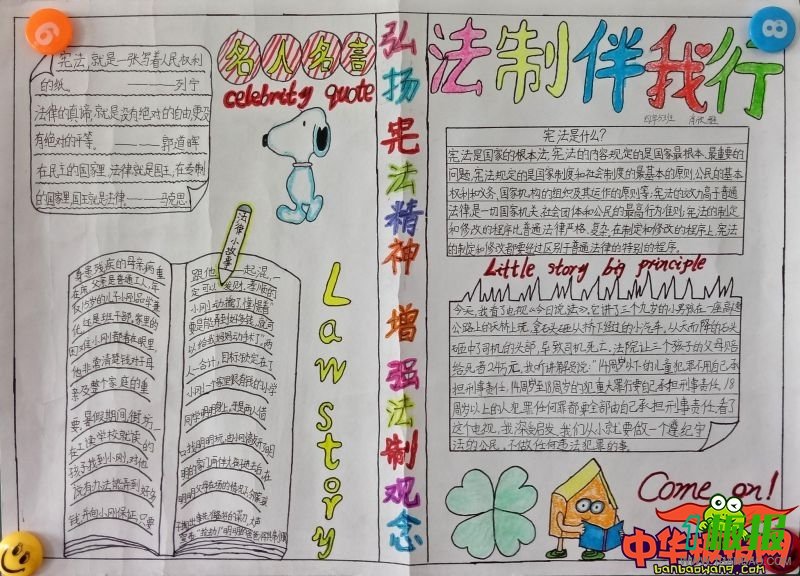 宪法,就是一张写着人民权利
的纸。 ———列宁
法律的真谛,就是没有绝对的自由,更没
有绝对的平等。 ———郭道晖
在民主的国家里,法律就是国王;在专制
的国家里,国王就是法律。——马克思
名人名言
celebrity quote
法律小故事
身患残疾的母亲病重
在床,父亲是普通工人,年
仅15岁的儿子小刚品学兼
优,还是班干部,家里的
困难小刚都看在眼里,
他非常清楚钱对于母
亲及整个家庭的重
要,暑假期间,街坊一
在工读学校就读的
孩子找到小刚,对他
没有办法能弄到好多
钱,并向小刚保证,只要
跟他一起混,一
定可以发财,孝顺的
小刚动摇了,懂得着
要是能弄到好多钱,就可
以给我妈妈动手术了"两
人一合计,目标锁定在了
小刚一个家里很有钱的小学
同学明明身上,于是两人借
Law story
弘扬宪法精神 增强法制观念
法制伴我行
宪法是什么?
宪法是国家的根本法,宪法的内容规定的是国家最根本、最重要的
问题,宪法规定的是国家制度和社会制度的最基本的原则,公民的基本
权利和义务,国家机构的组织及其运作的原则等,宪法的效力高于普通
法律,是一切国家机关、社会团体和公民的最高行为准则;宪法的制定
和修改的程序比普通法律严格、复杂,在制定和修改的程序上,宪法
的制定和修改都要经过区别于普通法律的特别的程序。
Little story big principle
今天,我看了电视《今日说法》,它讲了三个九岁的小男孩在一座高速
公路上的天桥上玩,拿石头砸从桥下经过的小汽车。从天而降的石头
砸中了司机的头部,导致司机死亡。法院让三个孩子的父母赔
给死者24万元,我听讲解员说:"14周岁以下的儿童犯罪不用自己承
担刑事责任,14周岁至18周岁的犯重大罪行要自己承担刑事责任,18
周岁以上的人犯罪任何罪都要全部由自己承担刑事责任。看了
这个电视,我深受启发,我们从小就要做一个遵纪守
法的公民,不做任何违法犯罪的事。
Come on!
中华板报网
banbaowang.com